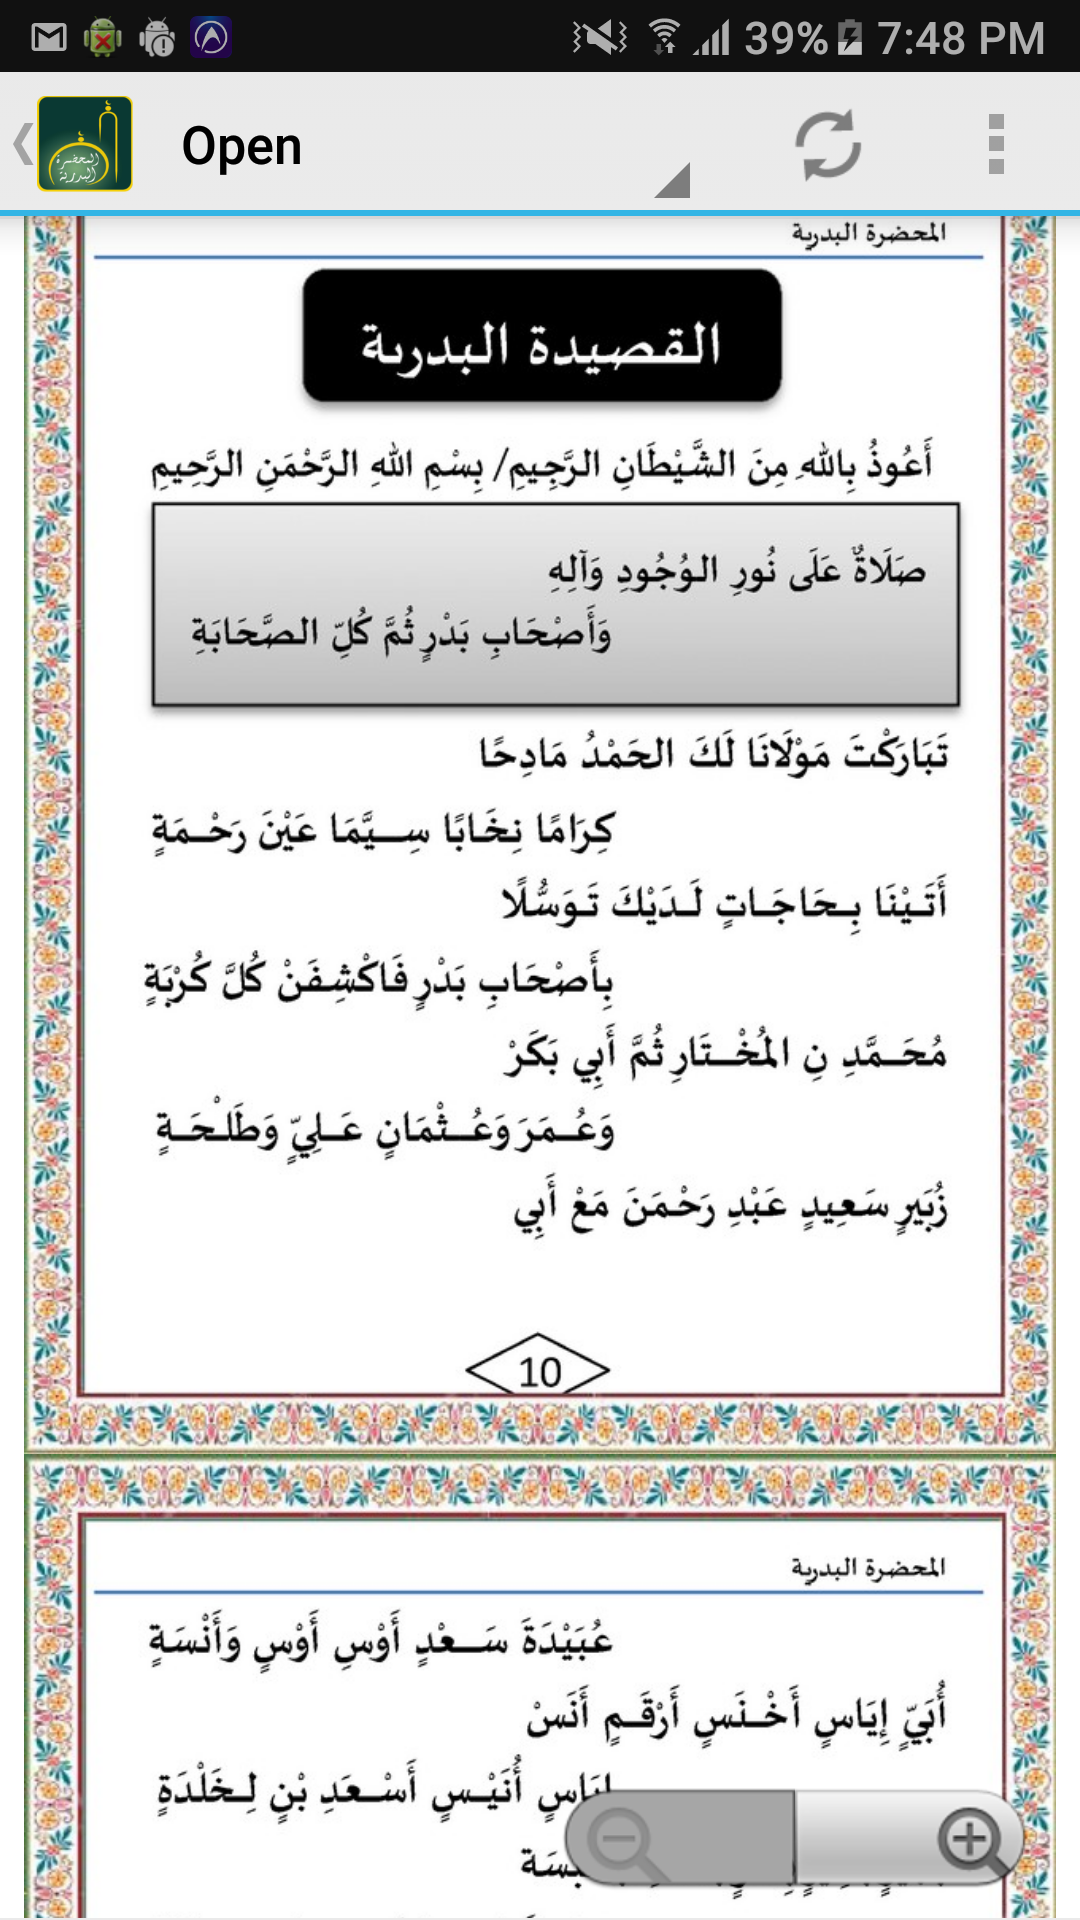 39% 7:48 PM
المحضرة البدرية
Open
المحضرة البدرية
القصيدة البدرية
أَعُوذُ بِاللهِ مِنَ الشَّيْطَانِ الرَّجِيمِ/ بِسْمِ اللهِ الرَّحْمَنِ الرَّحِيمِ
صَلَاةٌ عَلَى نُورِ الوُجُودِ وَآلِهِ
وَأَصْحَابِ بَدْرٍ ثُمَّ كُلِّ الصَّحَابَةِ
تَبَارَكْتَ مَوْلَانَا لَكَ الحَمْدُ مَادِحًا
كِرَامًا نِخَابًا سِيَّمَا عَيْنَ رَحْمَةٍ
أَتَيْنَا بِحَاجَاتٍ لَدَيْكَ تَوَسُّلًا
بِأَصْحَابِ بَدْرٍ فَاكْشِفَنْ كُلَّ كُرْبَةٍ
مُحَمَّدِ نِ المُخْتَارِ ثُمَّ أَبِي بَكَرْ
وَعُمَرَ وَعُثْمَانٍ عَلِيٍّ وَطَلْحَةٍ
زُبَيرٍ سَعِيدٍ عَبْدِ رَحْمَنَ مَعْ أَبِي
10
المحضرة البدرية
عُبَيْدَةَ سَعْدٍ أَوْسِ أَوْسٍ وَأَنْسَةٍ
أُبَيٍّ إِيَاسٍ أَخْنَسٍ أَرْقَمٍ أَنَسْ
إِيَاسٍ أُنَيْسٍ أَسْعَدِ بْنٍ لِخَلْدَةٍ